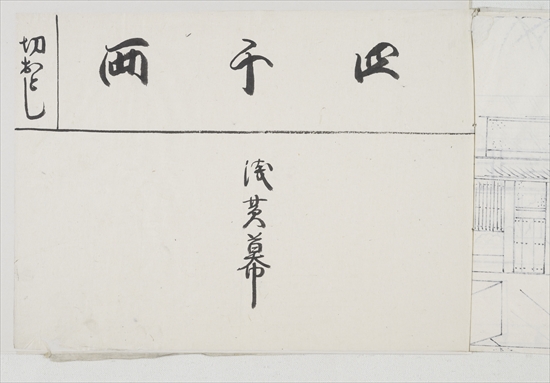 四千両
浅黄幕
切おとし